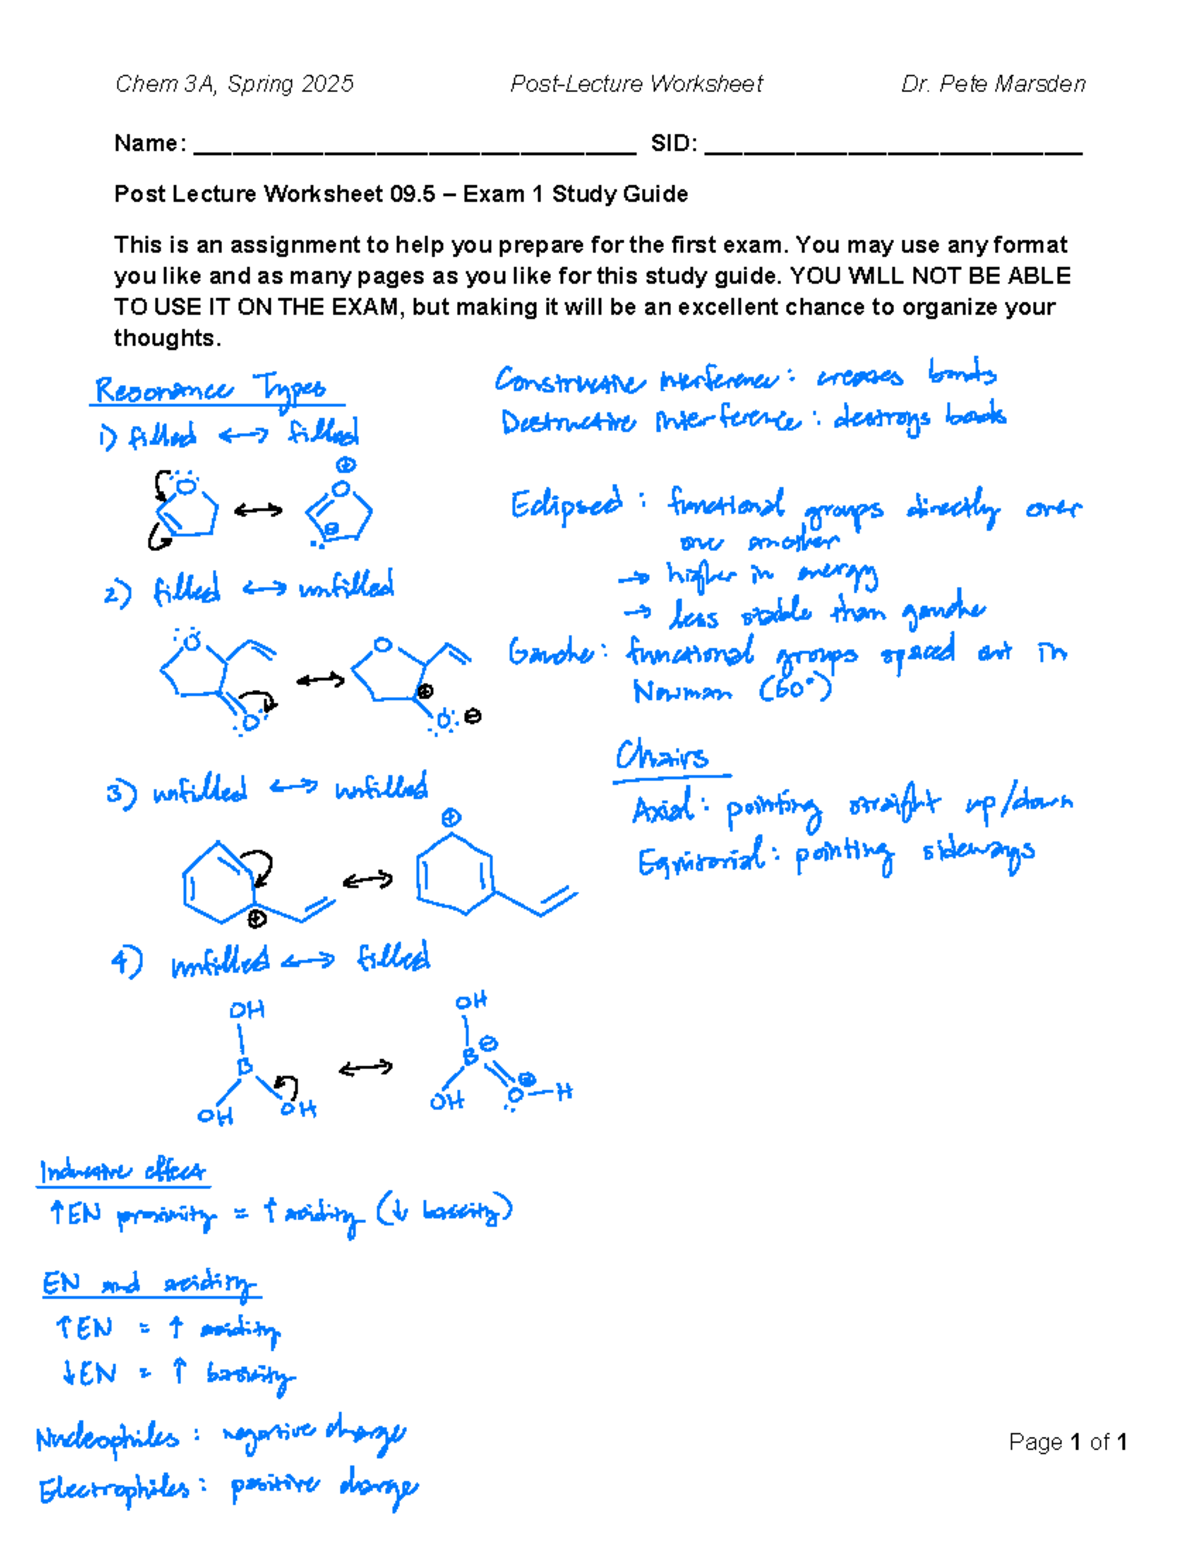 Chem 3A, Spring 2025 Post-Lecture Worksheet Dr. Pete Marsden
Name: _________________________________ SID: ____________________________
Post Lecture Worksheet 09.5 – Exam 1 Study Guide
This is an assignment to help you prepare for the first exam. You may use any format
you like and as many pages as you like for this study guide. YOU WILL NOT BE ABLE
TO USE IT ON THE EXAM, but making it will be an excellent chance to organize your
thoughts.
Resonance Types
1) filled ↔ filled
O ↔ O ⊕ ⊖
2) filled ↔ unfilled
O O ↔ O ⊕ O ⊖
3) unfilled ↔ unfilled
⊕ ↔ ⊕
4) unfilled ↔ filled
OH B OH OH ↔ OH B ⊖ OH O ⊕ H
Constructive interference: creases bonds
Destructive interference: destroys bonds
Eclipsed: functional groups directly over
one another
→ higher in energy
→ less stable than gauche
Gauche: functional groups spaced out in
Newman (60°)
Chairs
Axial: pointing straight up/down
Equitorial: pointing sideways
Inductive effect
↑EN proximity = ↑ acidity (↓ bascity)
EN and acidity
↑EN = ↑ acidity
↓EN = ↑ basicity
Nucleophiles: negative charge
Electrophiles: positive charge
Page 1 of 1